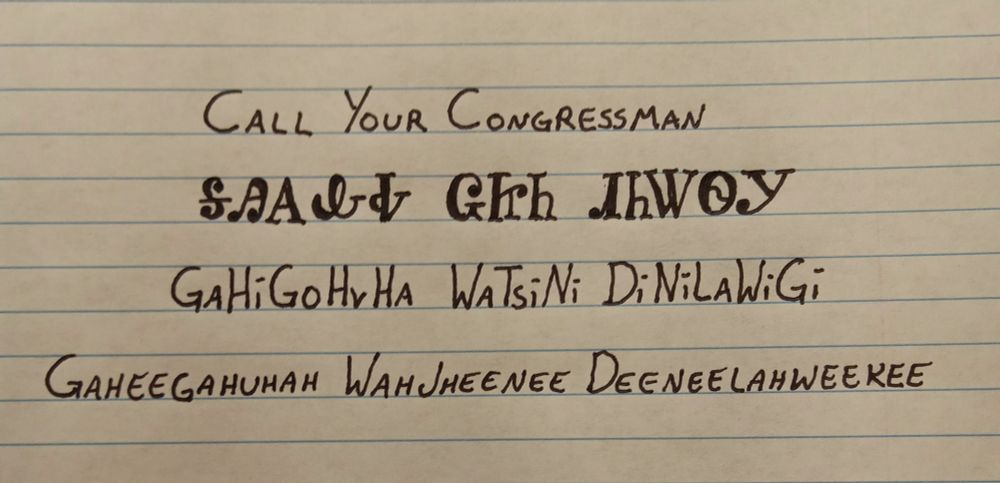 CALL YOUR CONGRESSMAN
ᎦᎯᎪᎲᎭ ᏩᏥᏂ ᏗᏂᎳᏫᎩ
GAHiGOHvHA WATSiNi DiNiLAWiGi
GAHEEGAHUHAH WAHJHEENEE DEENEELAHWEEKEE